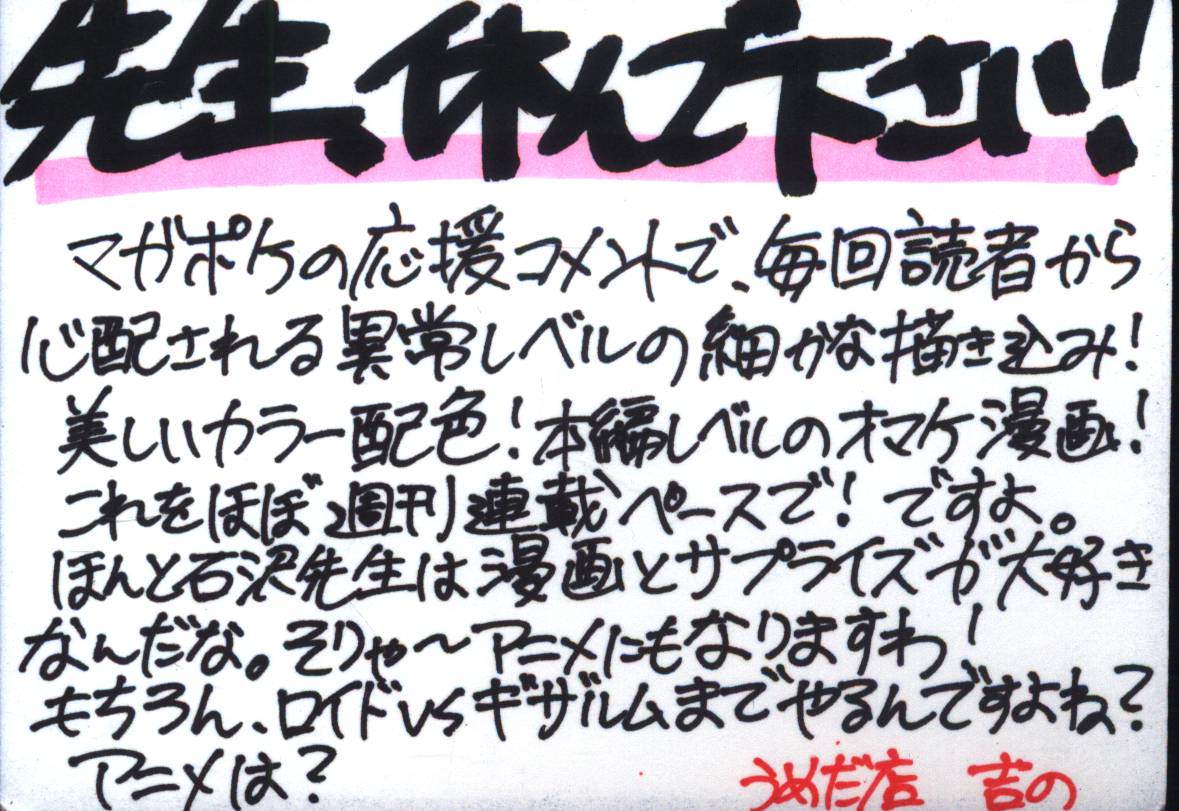 先生、休んで下さい!
マガポケの応援コメントで、毎回読者から
心配される異常レベルの細かな描き込み!
美しいカラー配色!本編レベルのオマケ漫画!
これをほぼ週刊連載ペースで!ですよ。
ほんと石沢先生は漫画とサプライズが大好き
なんだな。そりゃ〜アニメにもなりますわ!
もちろん、ロイドvsギザルムまでやるんですよね?
アニメは?
うめだ店 吉の